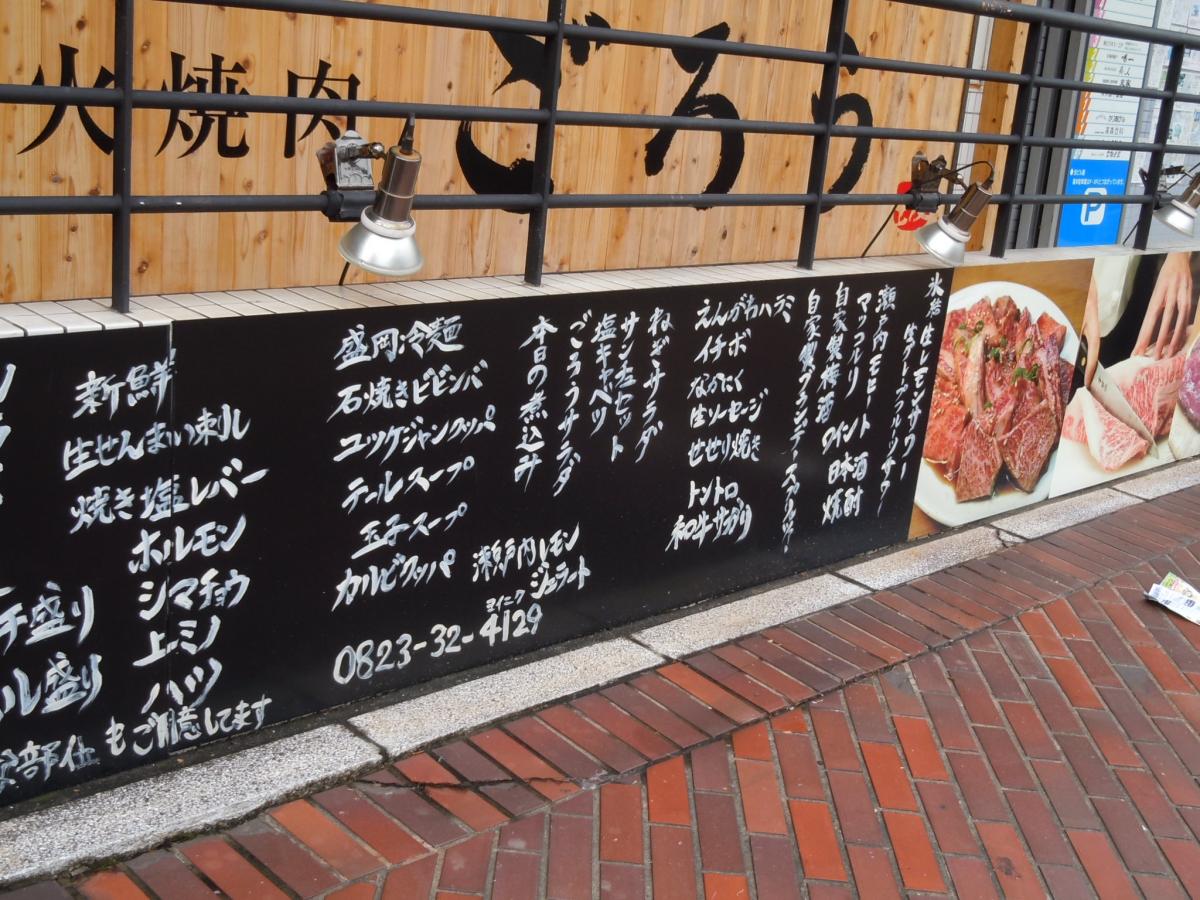 火焼肉
ごろう
新鮮
生せんまい刺し
焼き塩レバー
ホルモン
シマチョウ
上ミノ
ハツ
もご用意してます
盛り
ル盛り
部位
盛岡冷麺
石焼きビビンバ
ユッケジャンクッパ
テールスープ
玉子スープ
カルビクッパ
0823-32-4129
ヨイニク
瀬戸内レモン
ジェラート
ねぎサラダ
サンチュセット
塩キャベツ
ごろうサラダ
本日の煮込み
えんがわハラミ
イチボ
なかにく
生ソーセージ
せせり焼き
トントロ
和牛サガリ
氷岩
生レモンサワー
生グレープフルーツサワー
瀬戸内モヒート
マッコルリ ワイン
自家製梅酒 日本酒
焼酎
P